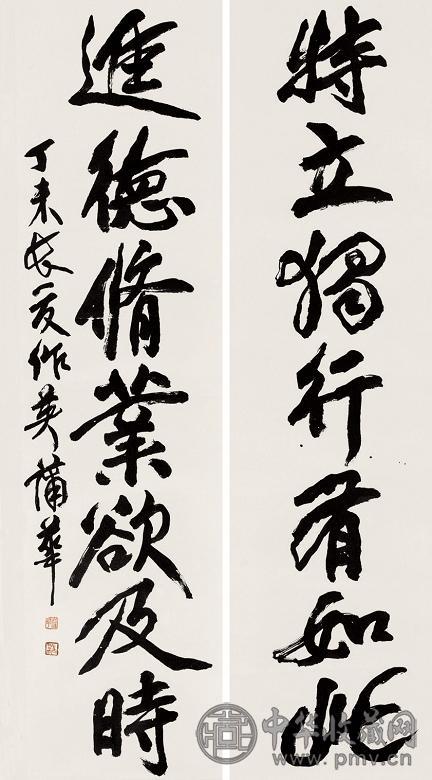 特立獨行有如此
進德脩業欲及時
丁未長夏作英蒲華
中华收藏网
www.pmv.cn